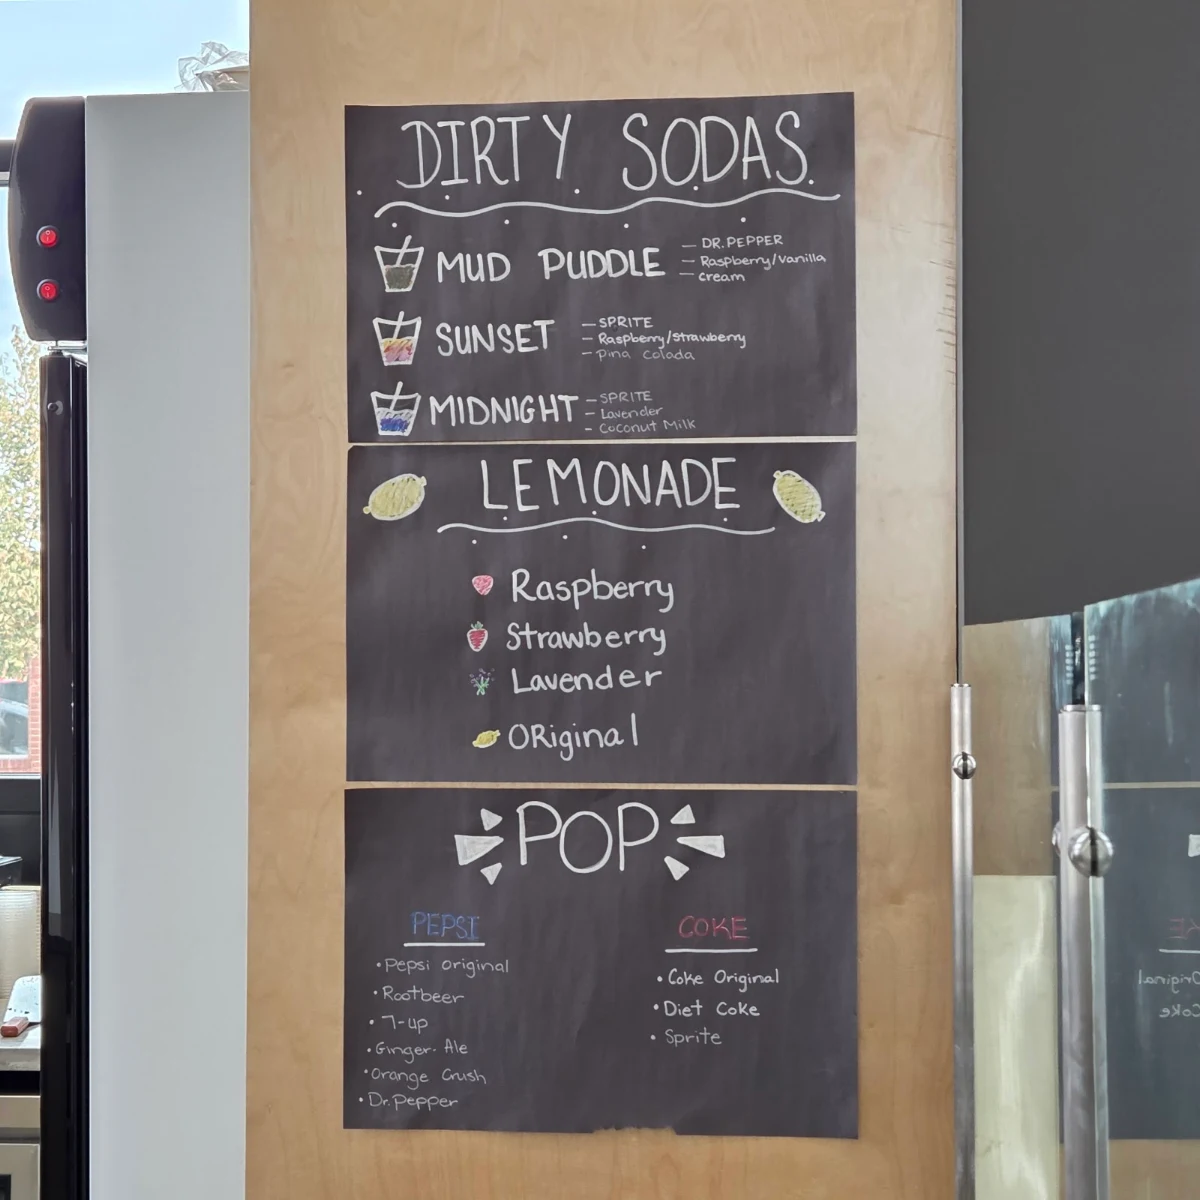 DIRTY SODAS
MUD PUDDLE
— DR. PEPPER
— Raspberry/vanilla
— cream
SUNSET
— SPRITE
— Raspberry/strawberry
— pina colada
MIDNIGHT
— SPRITE
— Lavender
— Coconut Milk
LEMONADE
Raspberry
Strawberry
Lavender
ORiginal
POP
PEPSI
• Pepsi original
• Rootbeer
• 7-up
• Ginger Ale
• Orange Crush
• Dr. Pepper
COKE
• Coke Original
• Diet Coke
• Sprite